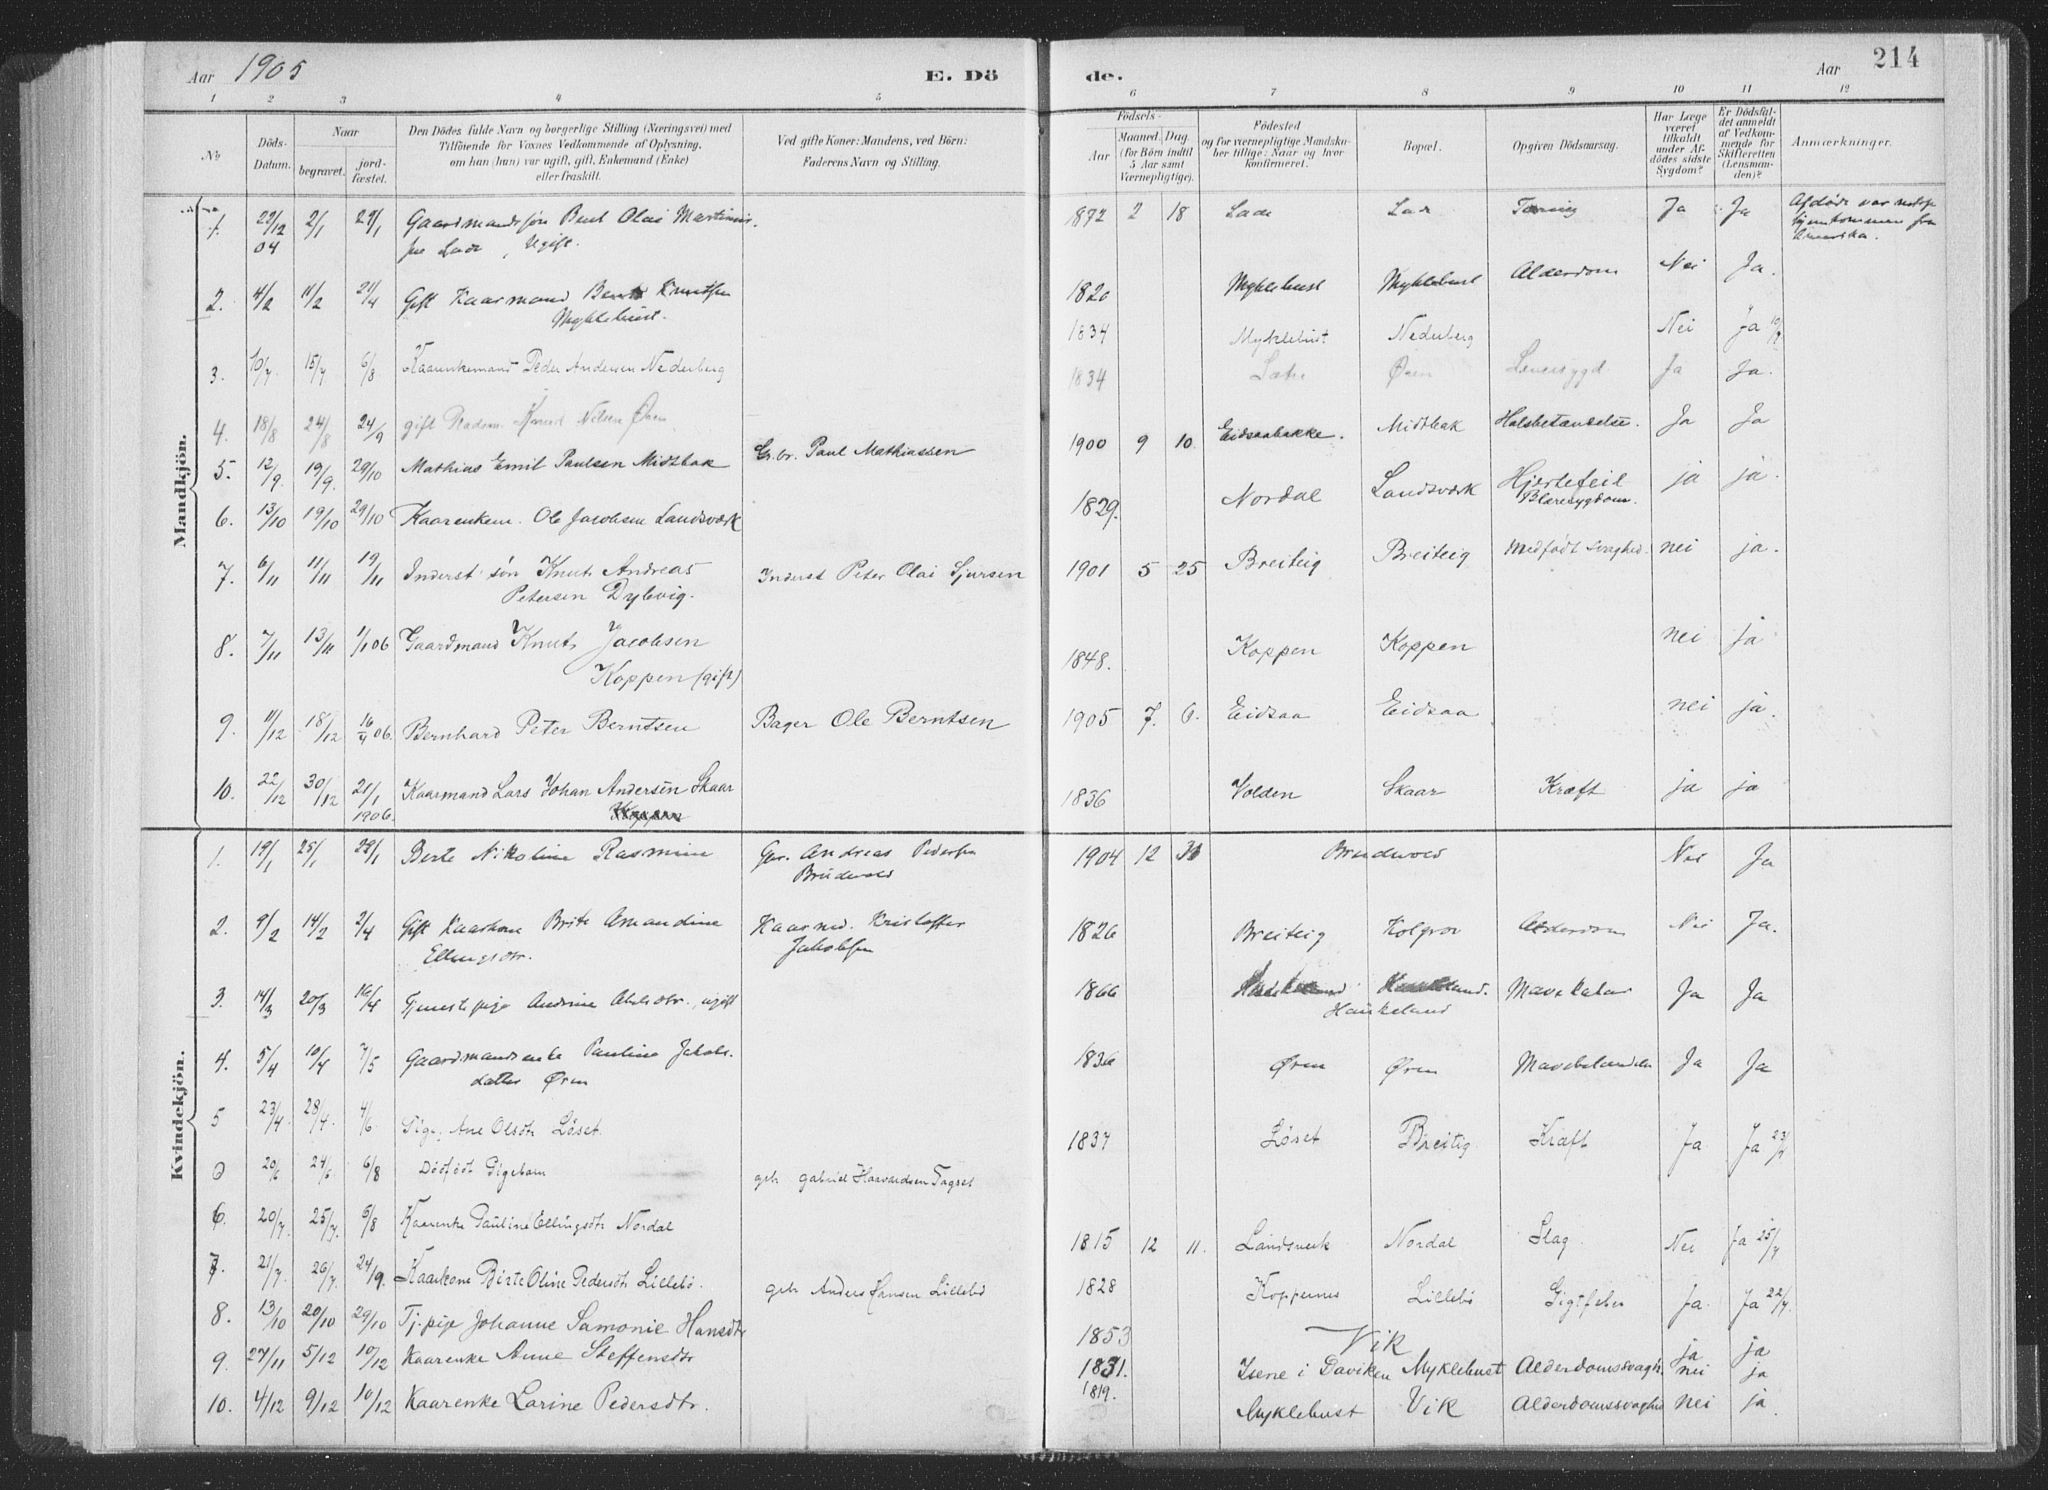 Aar 1905 E. Dö de. Aar 214
1 2 3 4 5 6 7 8 9 10 11 12
No
Döds-Datum.
Naar
begravet.
jord-fæstet.
Den Dödes fulde Navn og borgerlige Stilling (Næringsvei) med
Tilföiende för Voxnes Vedkommende af Oplysning,
om han (hun) var ugift, gift, Enkemand (Enke)
eller fraskilt.
Ved gifte Koner: Mandens, ved Börn:
Faderens Navn og Stilling.
Födsels-
Aar
Maaned. Dag.
(for Börn indtil
5 Aar samt
Værnepligtige).
Födested
og for værnepligtige Mandska-
ber tillige: Naar og hvor
konfirmeret.
Bopæl.
Opgiven Dödsaarsag.
Har Læge
været
tilkaldt
under Af-
dödes sidste
Sygdom?
Er Dödsfal-
det anmeldt
af Vedkom-
mende for
Skifteretten
(Lensman-
den)?
Anmærkninger.
Mandkjön.
1. 29/12 04 2/1 29/1 Gaardmandssøn Bent Olai Martinus. 1872 2 18 Lade Lade Tæring Ja Ja Afdøde var
hjemkommen fra
Amerika.
Lade, Ugift.
2. 4/2 11/2 21/4 Gift Kaarmand Bernt Knutsen 1820 Myklebust Myklebust Alderdom Nei Ja.
Myklebust.
3. 10/7. 15/7 6/8 Kaarenkemand Peder Andersen Nederberg 1834 Myklebust Nederberg Nei Ja 10/7
4. 18/8 24/8 24/9 gift Knud Nilsen Øren 1834 Sætre Øren Leversygd. Ja Ja.
5. 12/9. 19/9. 29/10 Mathias Emil Paulsen Midtbak Gr.br. Paul Mathiassen 1900 9 10. Eidsaabakke. Midtbak Halsbetændelse. Ja Ja
6. 13/10 19/10 29/10 Kaarenkem. Ole Jacobsen Landsværk 1829. Nordal Landsværk Hjertefeil ja ja.
Blæresygdom.
7. 6/11 11/11 19/11 Inderst søn Knut Andreas Inderst Peter Olai Sjursen 1901 5 25 Breiteig Breiteig Medfødt Svaghed. nei ja.
Petersen Dylvig.
8. 7/11 13/11 1/1 06 Gaardmand Knut Jacobsen 1848. Koppen Koppen nei ja
Koppen (gift)
9. 11/12 18/12 16/4 06. Bernhard Peter Berntsen Bager Ole Berntsen 1905 7. 6. Eidsaa Eidsaa nei ja.
10. 22/12 30/12 21/1 1906. Kaarmand Lars Johan Andersen Skaar 1836 Volden Skaar Kræft ja ja
Koppen
Kvindekjön.
1. 19/1 25/1 29/1 Berte Nikoline Rasmine Gbr. Andreas Pedersen 1904 12 31 Brudevold Nei Ja
Brudevold
2. 9/2 14/2 2/4 Gift Kaarkone Brite Amandine Kaarmd. Kristoffer 1826 Breiteig Kolgrov Alderdom Nei Ja.
Ellingsdtr. Jakobsen
3. 14/3 20/3 16/4 Tjenestepige Andrine Abelsdtr. ugift 1866 Haukeland. Mavekatar Ja Ja
Haukeland
4. 5/4 10/4 7/5 Gaardmandsenke Pauline Jakobs- 1836 Øren Øren Ja Ja
datter Øren
5 23/4 28/4. 4/6 Pige. Ane Olsdtr Løset. 1837 Løset Breitig Kræft Ja Ja 23/4
0 20/6 24/6 6/8 Dødfødt Pigebarn gbr gabriel Haavardsen Fagset
6. 20/7. 25/7. 6/8 Kaarenke Pauline Ellingsdtr Nordal 1815 12 11. Landsverk Nordal Slag. Nei Ja 25/7
7. 21/7. 26/7. 24/9. Kaarkone Birte Oline Pedersdtr Lillebø. gbr Anders Hansen Lillebø 1828 Koppernes Lillebø Gigtfeber Ja. Ja 22/7.
8. 13/10 20/10 29/10 Tj.pige Johanne Samonie Hansdtr 1853 Vik ja ja
9. 27/11 5/12 10/12 Kaarenke Anne Steffensdtr 1831. Isene i Daviken Myklebust Alderdomssvagh. nei ja
10. 4/12 9/12 10/12 Kaarenke Larine Pedersdtr. 1819. Myklebust Vik Alderdomssvaghed nei ja.